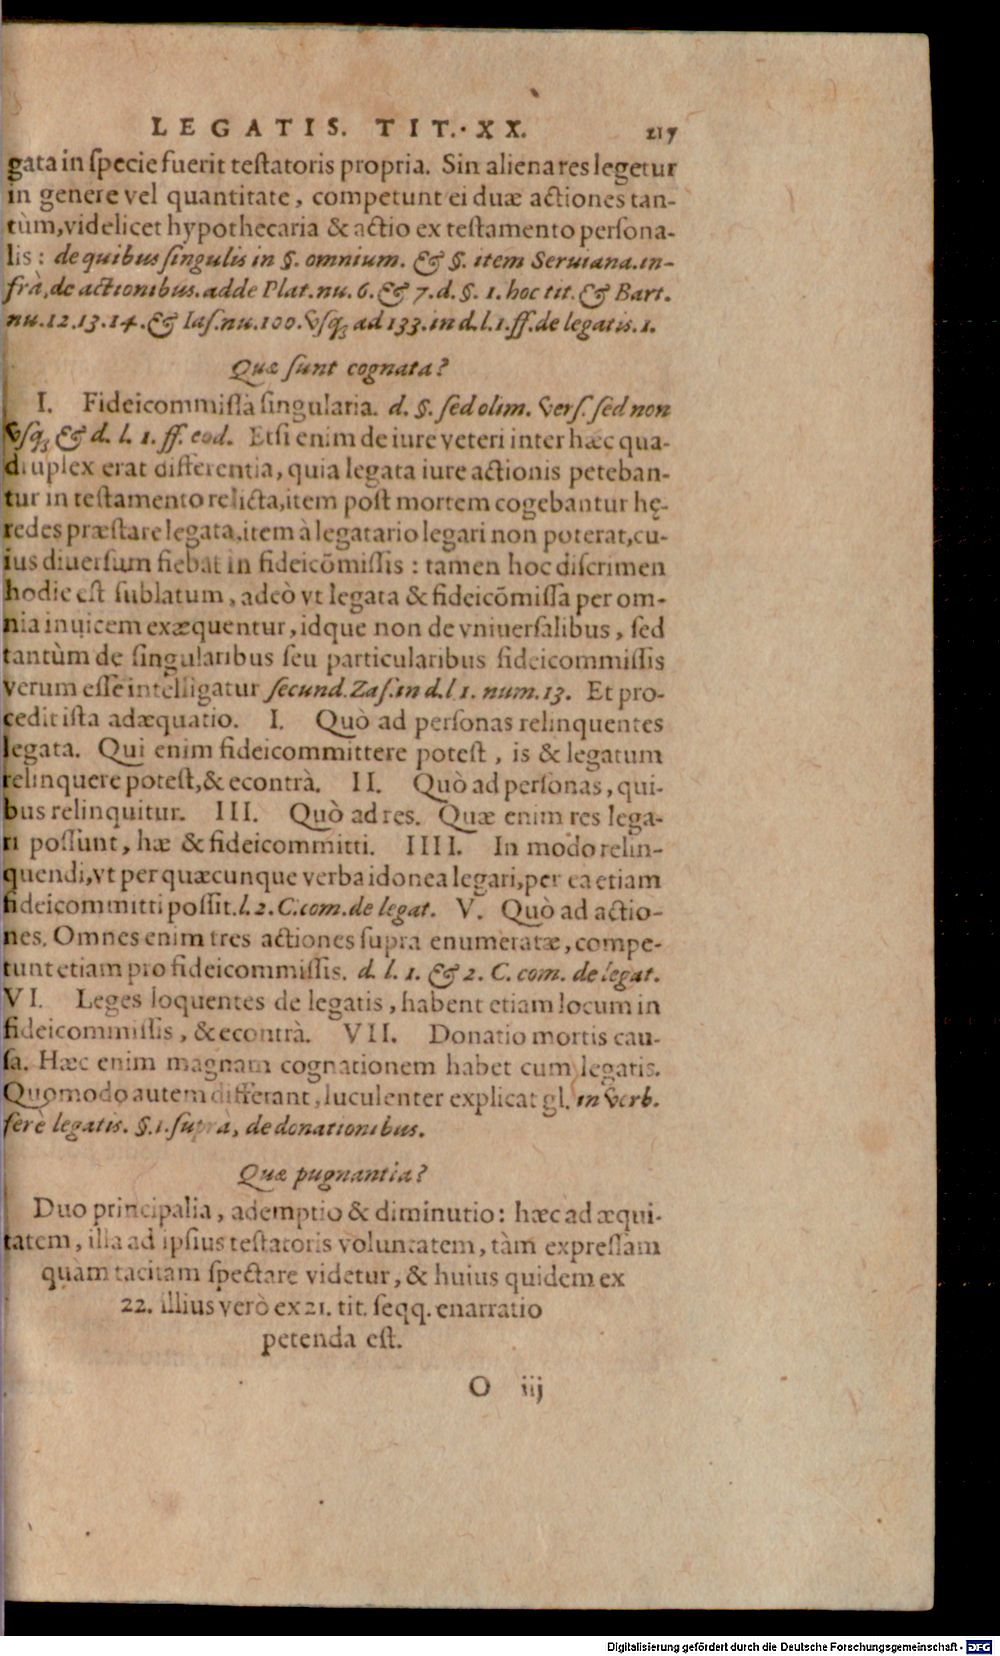 LEGATIS. TIT. XX. 217
gata in ſpecie fuerit teſtatoris propria. Sin aliena res legetur
in genere vel quantitate, competunt ei duæ actiones tan-
tùm, videlicet hypothecaria & actio ex teſtamento perſona-
lis: de quibus ſingulis in §. omnium. & §. item Seruiana. in-
frà, de actionibus. adde Plat. nu. 6. & 7. d. §. 1. hoc tit. & Bart.
nu. 12. 13. 14. & Iaſ. nu. 100. vſq; ad 133. in d. l. 1. ff. de legatis. 1.
Quæ ſunt cognata?
I. Fideicommiſſa ſingularia. d. §. ſed olim. verſ. ſed non
vſq; & d. l. 1. ff. eod. Etſi enim de iure veteri inter hæc qua-
druplex erat differentia, quia legata iure actionis peteban-
tur in teſtamento relicta, item poſt mortem cogebantur hę-
redes præſtare legata, item à legatario legari non poterat, cu-
ius diuerſum fiebat in fideicōmiſſis: tamen hoc diſcrimen
hodie eſt ſublatum, adeò vt legata & fideicōmiſſa per om-
nia inuicem exæquentur, idque non de vniuerſalibus, ſed
tantùm de ſingularibus ſeu particularibus fideicommiſſis
verum eſſe intelligatur ſecund. Zaſ. in d. l 1. num. 13. Et pro-
cedit iſta adæquatio. I. Quò ad perſonas relinquentes
legata. Qui enim fideicommittere poteſt, is & legatum
relinquere poteſt, & econtrà. II. Quò ad perſonas, qui-
bus relinquitur. III. Quò ad res. Quæ enim res lega-
ri poſſunt, hæ & fideicommitti. IIII. In modo relin-
quendi, vt per quæcunque verba idonea legari, per ea etiam
fideicommitti poſſit. l. 2. C. com. de legat. V. Quò ad actio-
nes. Omnes enim tres actiones ſupra enumeratæ, compe-
tunt etiam pro fideicommiſſis. d. l. 1. & 2. C. com. de legat.
VI. Leges loquentes de legatis, habent etiam locum in
fideicommiſſis, & econtrà. VII. Donatio mortis cau-
ſa. Hæc enim magnam cognationem habet cum legatis.
Quomodo autem differant, luculenter explicat gl. in verb.
ferè legatis. §. 1. ſuprà, de donationibus.
Quæ pugnantia?
Duo principalia, ademptio & diminutio: hæc ad æqui-
tatem, illa ad ipſius teſtatoris voluntatem, tàm expreſſam
quàm tacitam ſpectare videtur, & huius quidem ex
22. illius verò ex 21. tit. ſeqq. enarratio
petenda eſt.
O iij
Digitalisierung gefördert durch die Deutsche Forschungsgemeinschaft - DFG